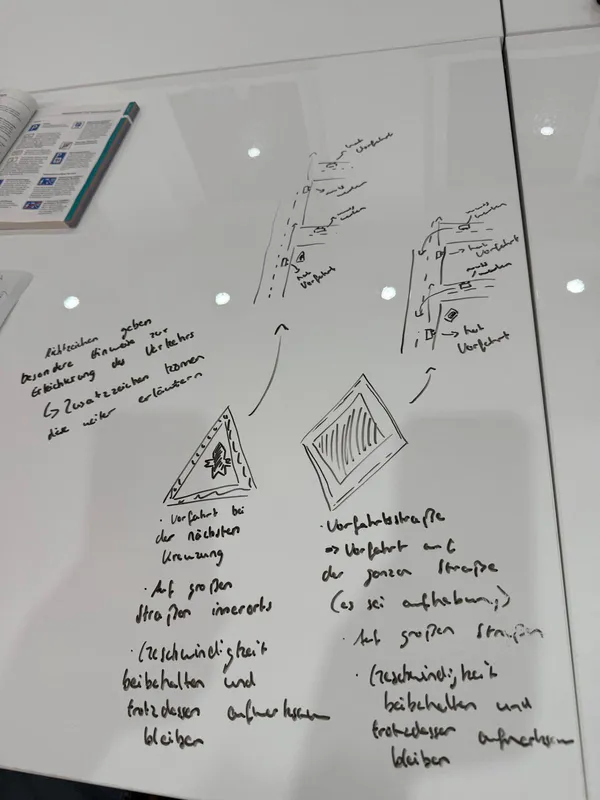 hat
Vorfahrt
muss
warten
muss
warten
hat
Vorfahrt
muss
warten
hat
Vorfahrt
muss
warten
hat
Vorfahrt
Richtzeichen geben
besondere Hinweise zur
Erleichterung des Verkehrs
↳ Zusatzzeichen können
diese weiter erläutern
· Vorfahrt bei
der nächsten
Kreuzung
· Auf großen
Straßen innerorts
· Geschwindigkeit
beibehalten und
trotzdessen aufmerksam
bleiben
· Vorfahrtsstraße
⇒ Vorfahrt auf
der ganzen Straße
(es sei aufhebung)
· Auf großen Straßen
· Geschwindigkeit
beibehalten und
trotzdessen aufmerksam
bleiben